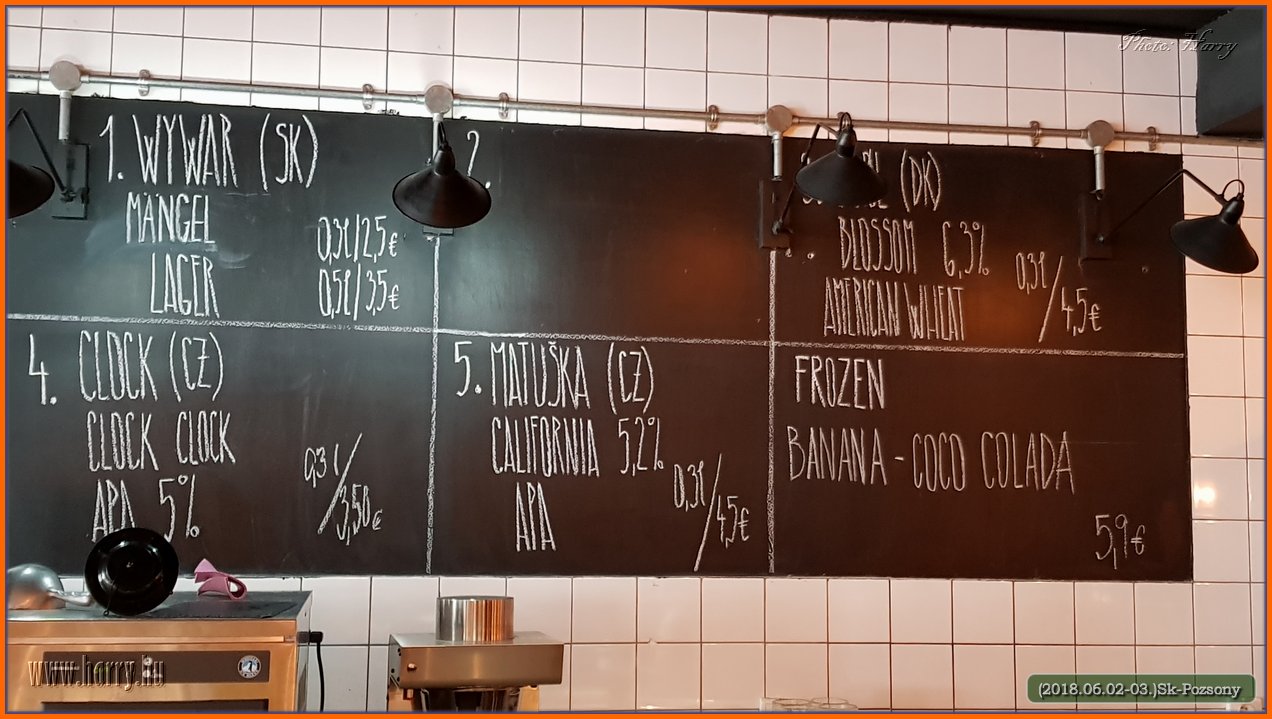 Photo: Harry
1. WYWAR (SK)
MÄNGEL
LAGER
0,3l/2,5€
0,5l/3,5€
2.
(DK)
BLOSSOM 6,3%
AMERICAN WHEAT
0,3l/4,5€
4. CLOCK (CZ)
CLOCK CLOCK
APA 5%
0,3l/3,50€
5. MATUŠKA (CZ)
CALIFORNIA 5,2%
APA
0,3l/4,5€
FROZEN
BANANA - COCO COLADA
5,9€
www.harry.hu
(2018.06.02-03.)Sk-Pozsony